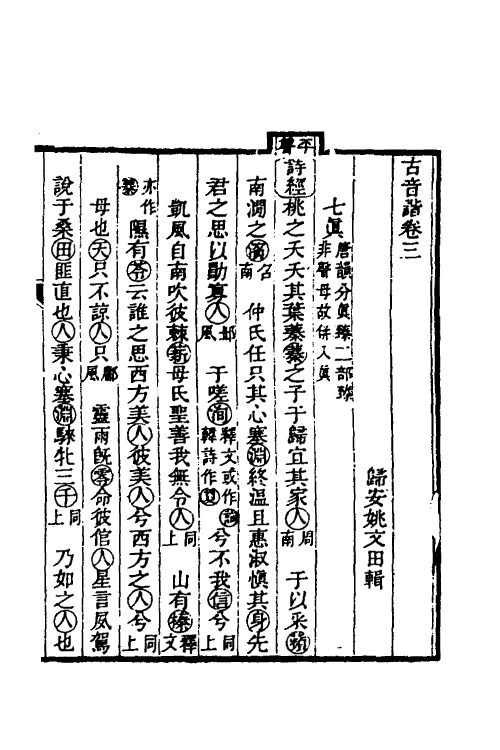 古音諧卷三
歸安姚文田輯
七眞 唐韻分眞臻二部臻非聲母故併入眞
平聲
詩經 桃之夭夭其葉蓁蓁之子于歸宜其家人 周南 于以采蘋
南澗之濱 召南 仲氏任只其心塞淵終温且惠淑愼其身先
君之思以勖寡人 邶風 于嗟洵 釋文或作詢韓詩作敻 兮不我信兮 同上
凱風自南吹彼棘薪母氏聖善我無令人 同上 山有榛 釋文
亦作蓁 隰有苓云誰之思西方美人彼美人兮西方之人兮 同上
母也天只不諒人只 鄘風 靈雨旣零命彼倌人星言夙駕
說于桑田匪直也人秉心塞淵騋牝三千 同上 乃如之人也